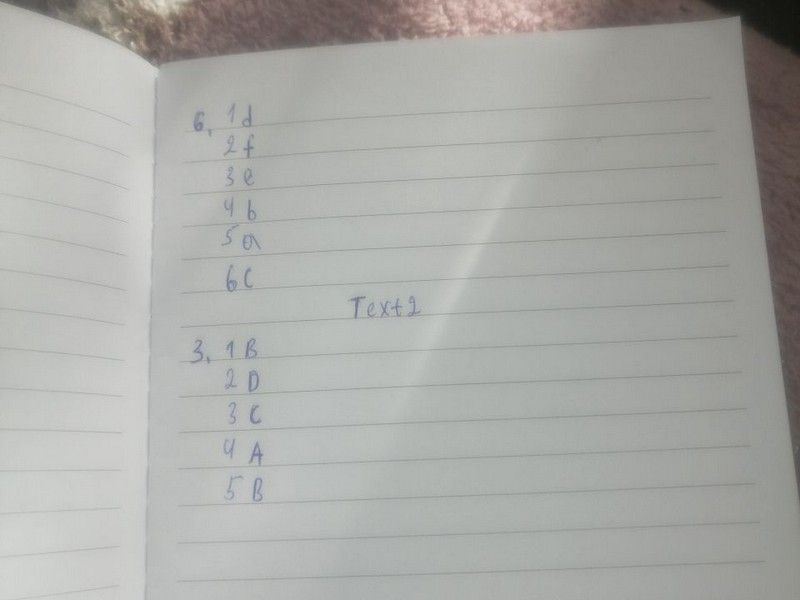 6. 1 d
2 f
3 e
4 b
5 a
6 c
Text 2
3. 1 B
2 D
3 C
4 A
5 B